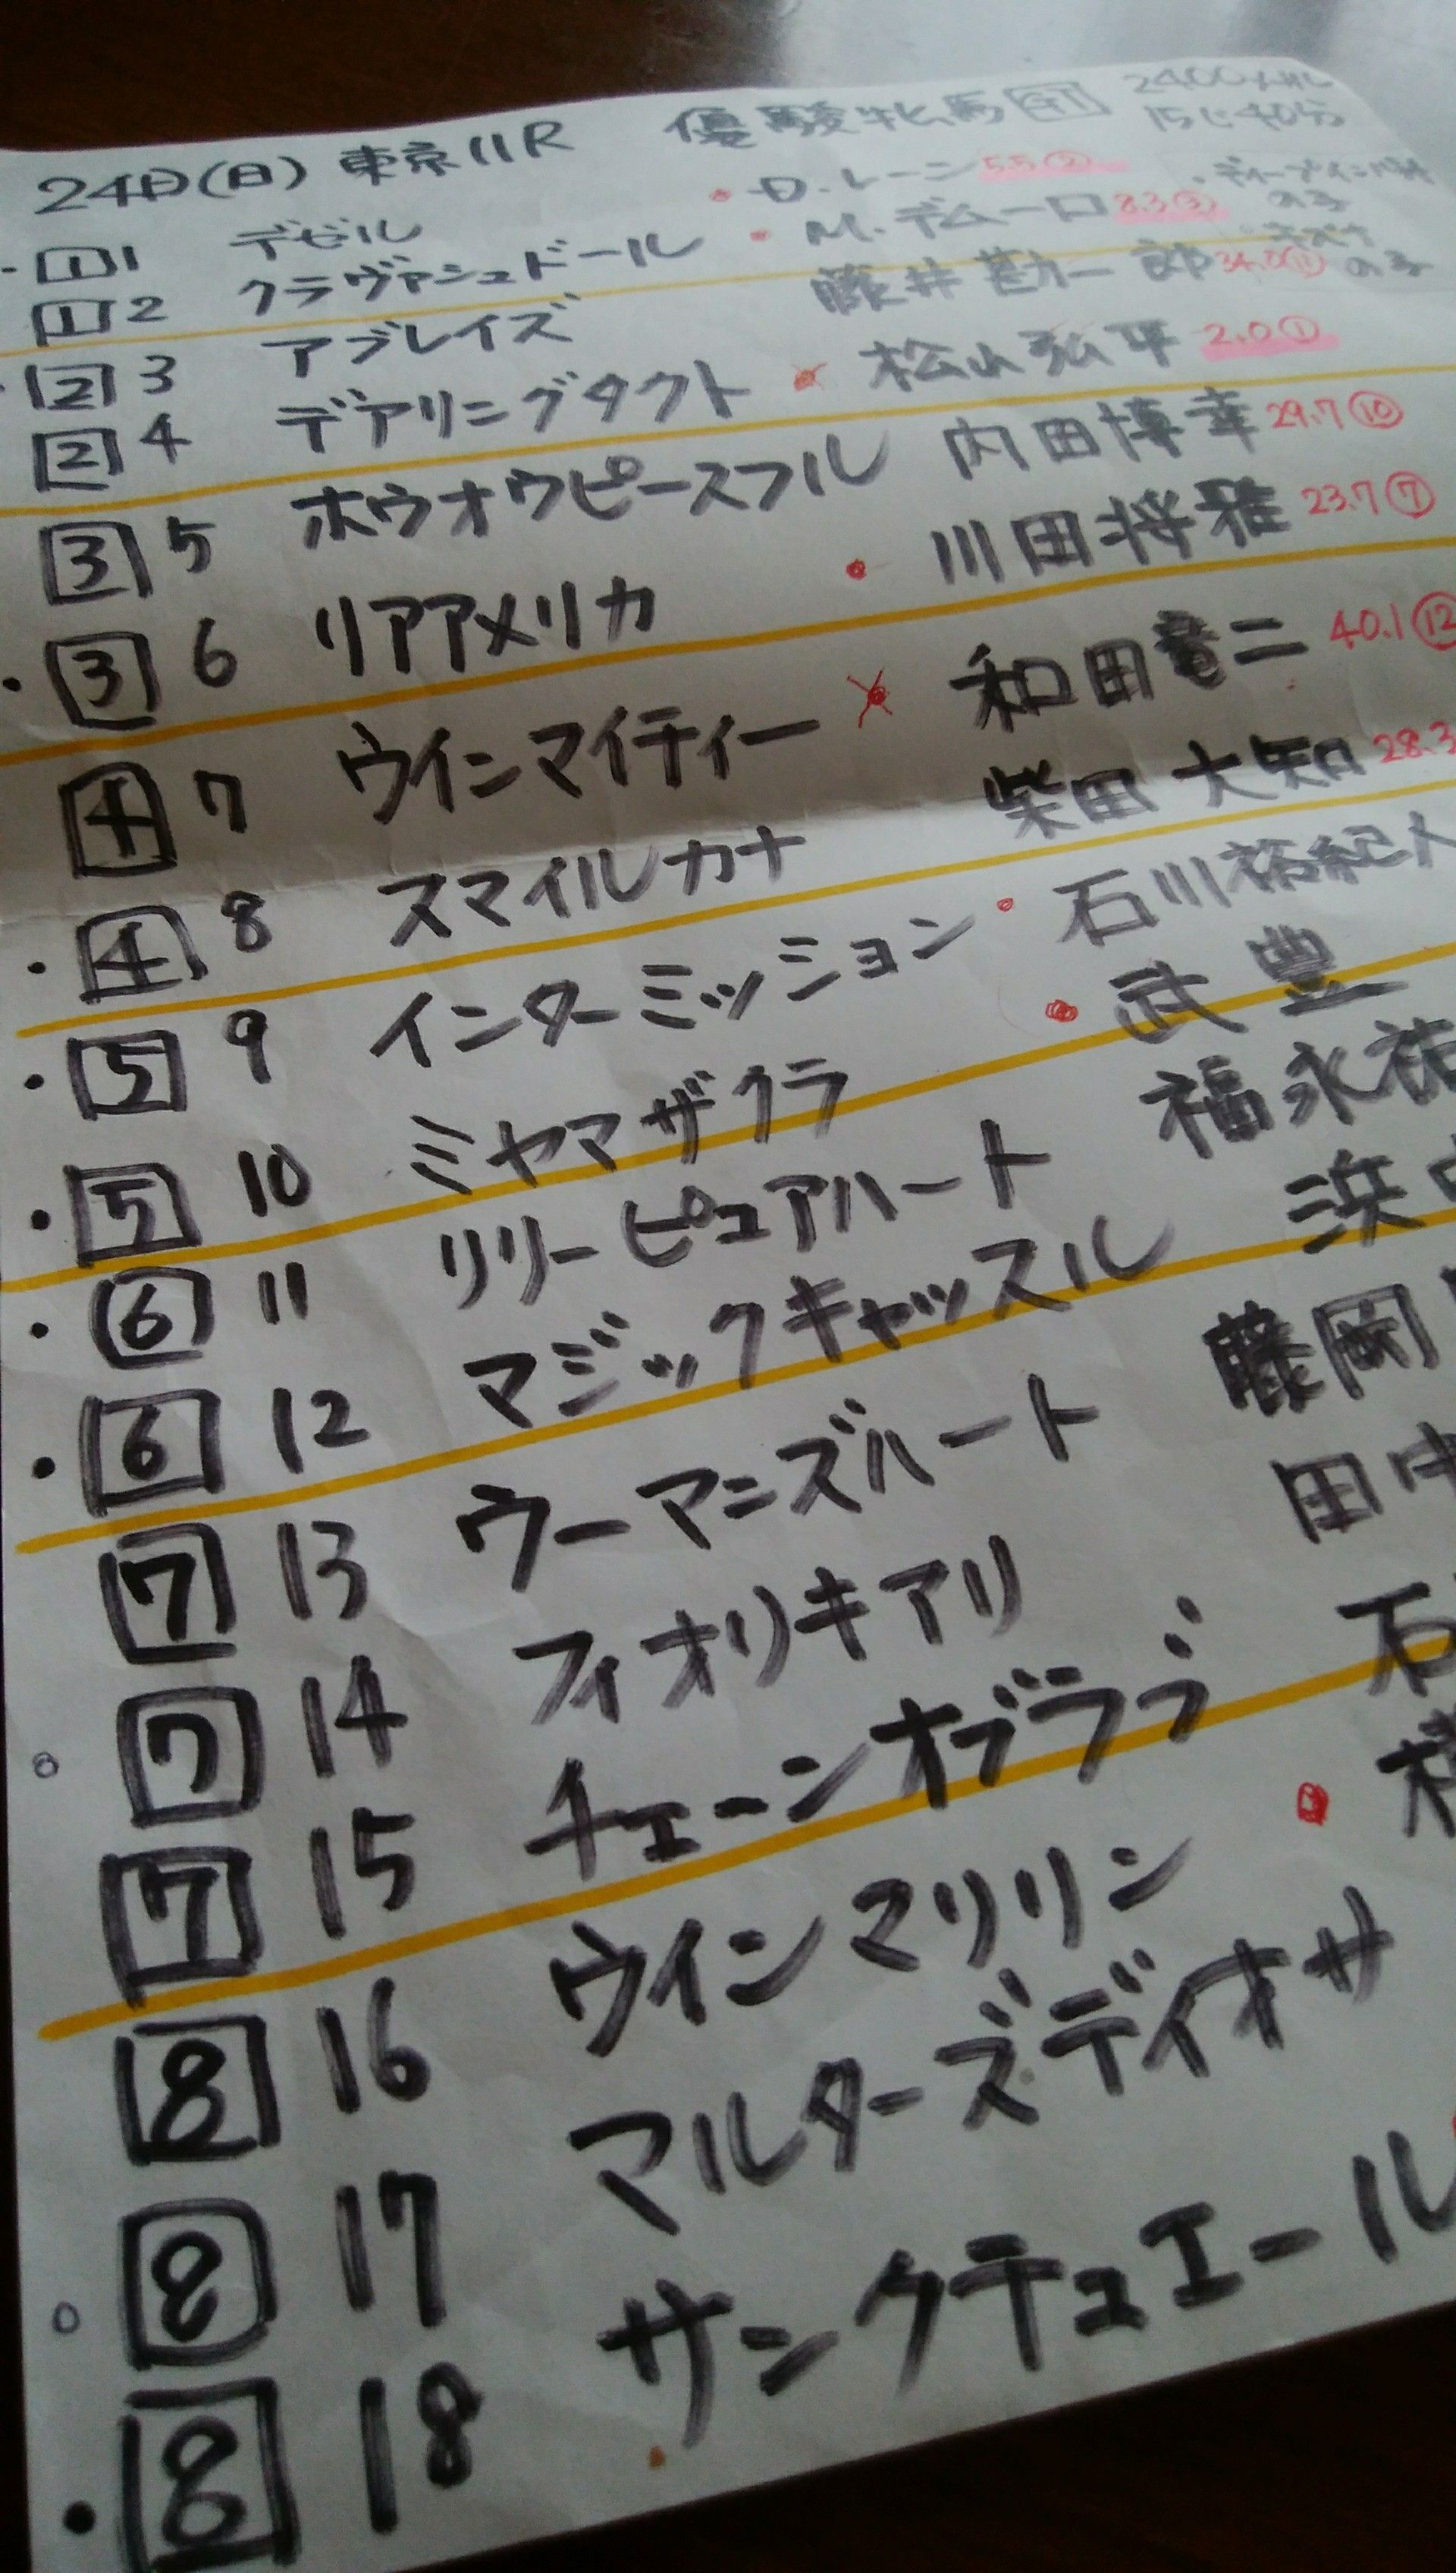 24日(日) 東京11R 優駿牝馬 GI 2400メートル
15じ40分
・1 1 デゼル ・D.レーン 5.5② ・ディープインパクトの子
1 2 クラヴァシュドール ・M.デムーロ 8.3③
・2 3 アブレイズ 藤井勘一郎 34.0⑪ ・キズナの子
2 4 デアリングタクト 松山弘平 2.0①
3 5 ホウオウピースフル 内田博幸 29.7⑩
・3 6 リアアメリカ ・川田将雅 23.7⑦
4 7 ウインマイティー × 和田竜二 40.1⑫
・4 8 スマイルカナ 柴田大知 28.3
・5 9 インターミッション ・石川裕紀人
・5 10 ミヤマザクラ ・武豊
・6 11 リリーピュアハート 福永祐
・6 12 マジックキャッスル 浜中
7 13 ウーマンズハート 藤岡
7 14 フィオリキアリ 田中
7 15 チェーンオブラブ 石
8 16 ウインマリリン ・横
8 17 マルターズディオサ
・8 18 サンクテュエール